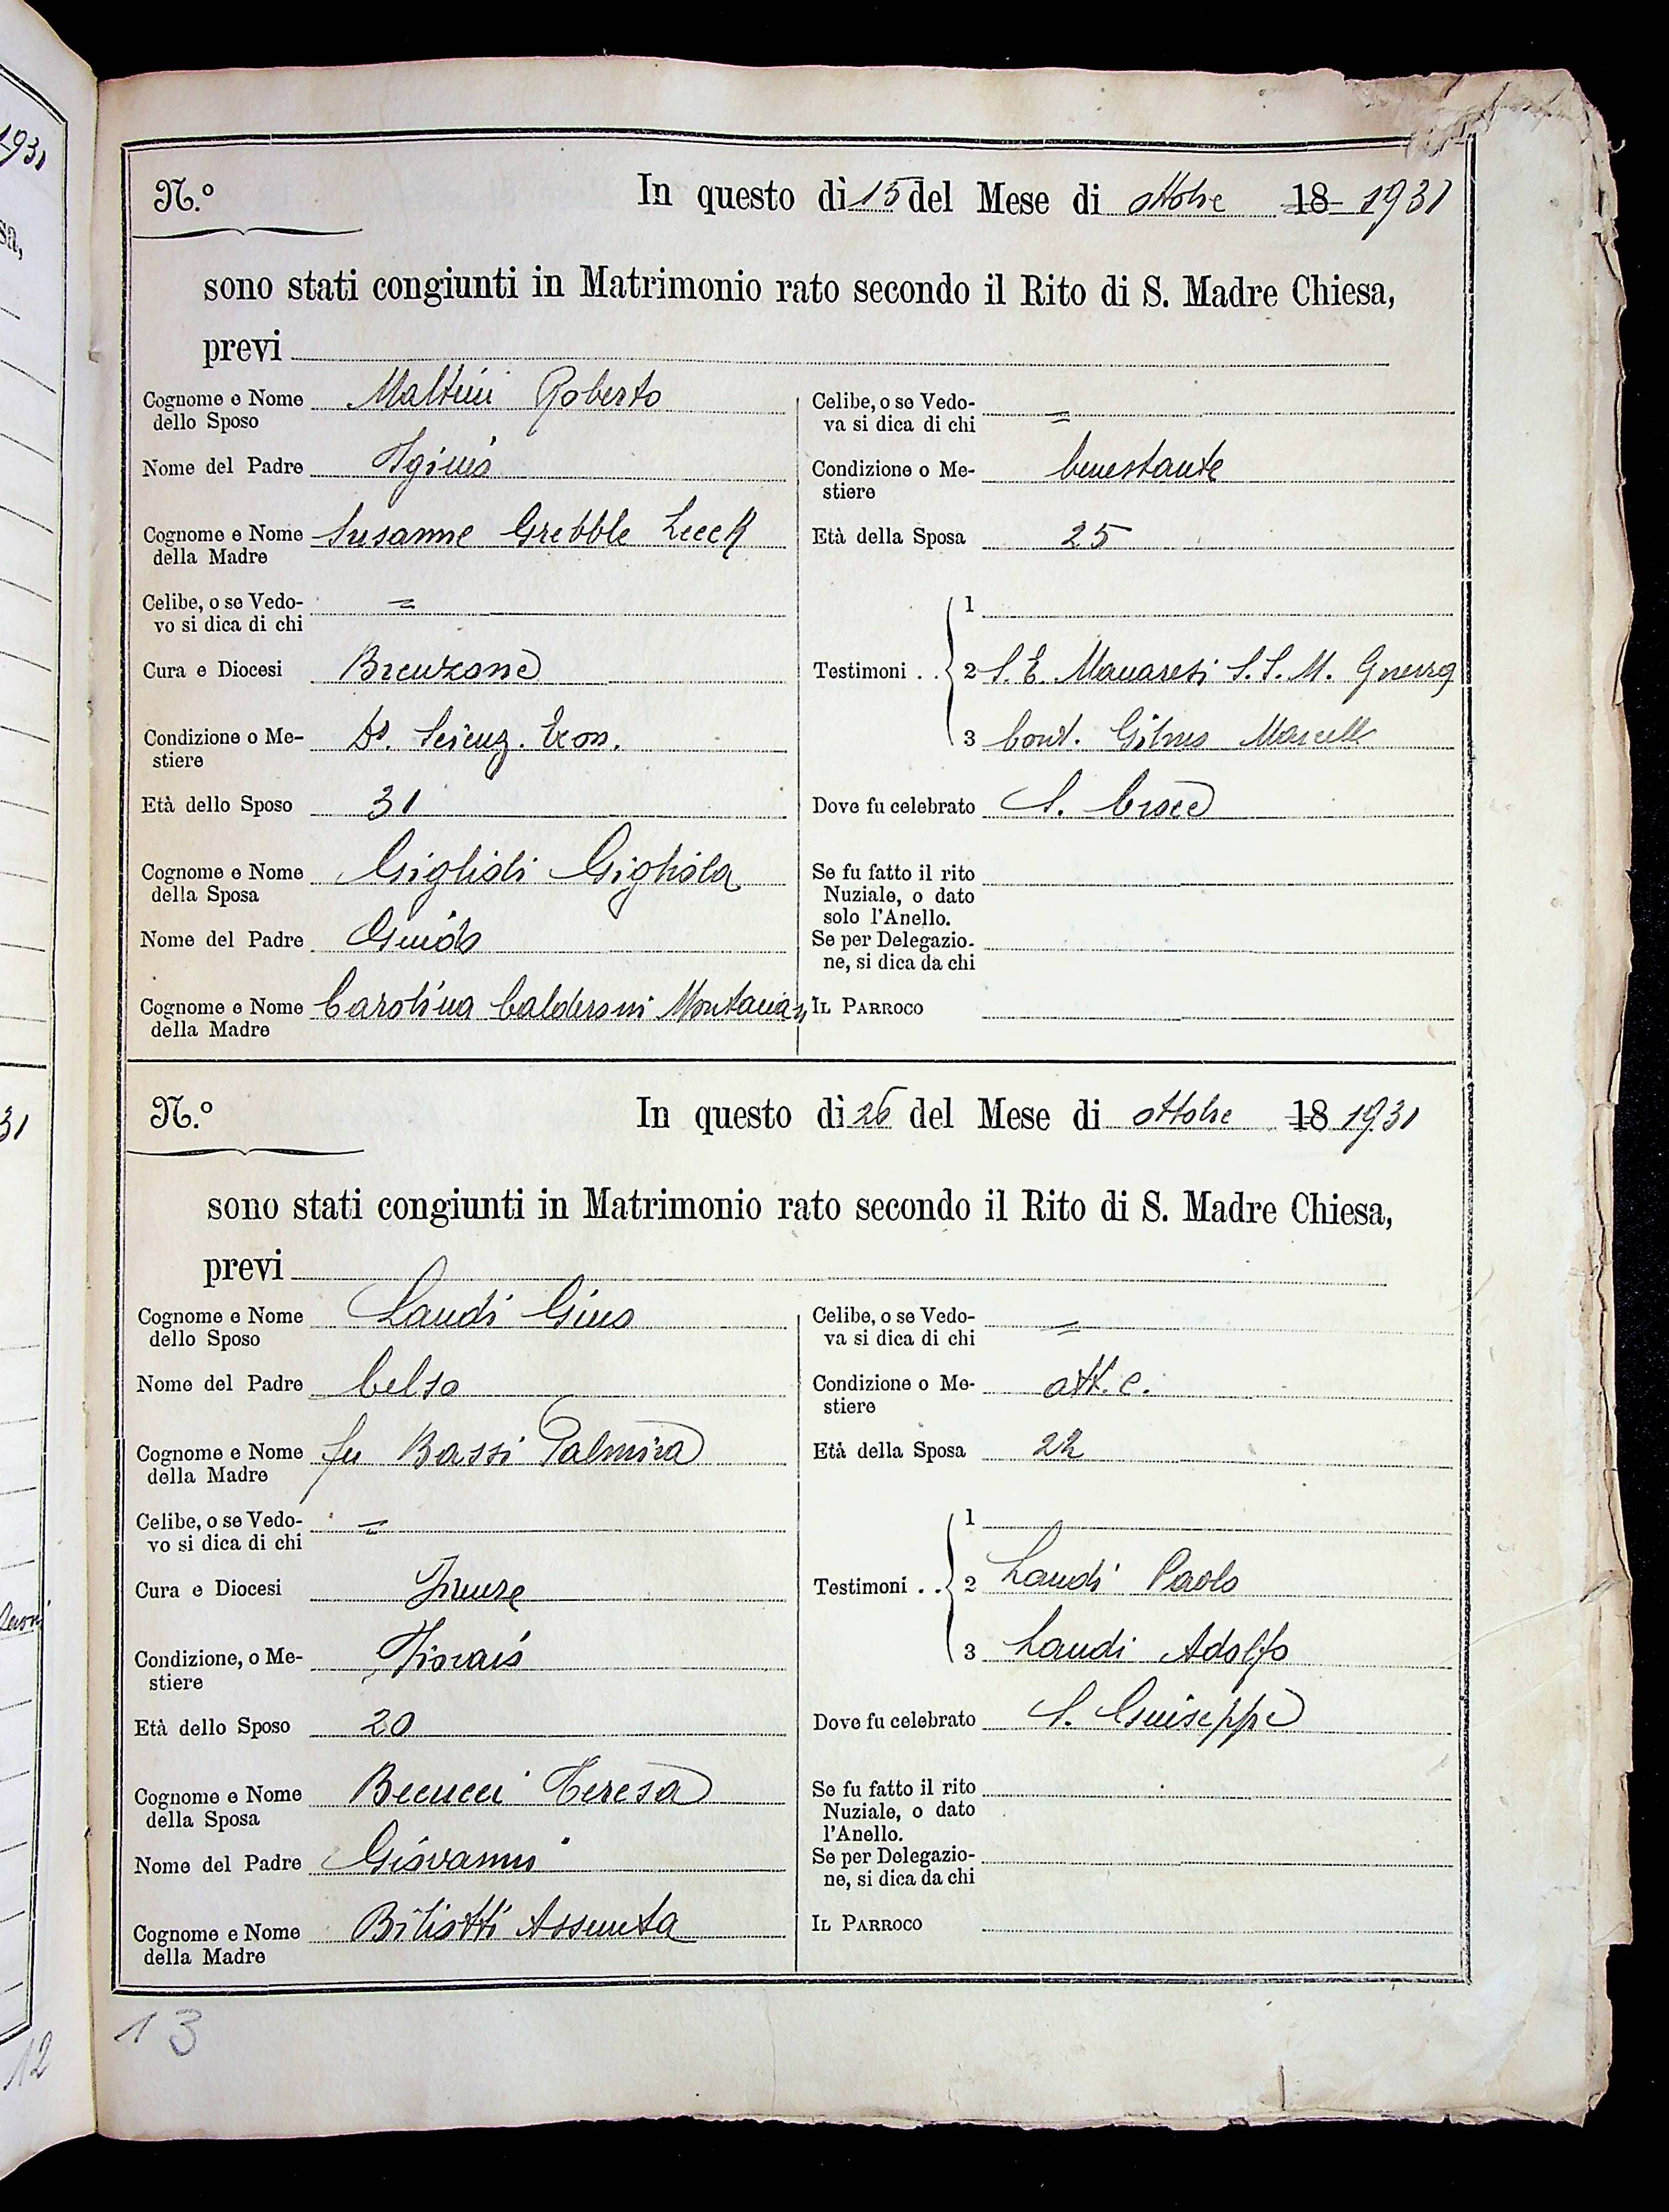 1931
sa,
31
12
N.º In questo dì 15 del Mese di ottobre 18 1931
sono stati congiunti in Matrimonio rato secondo il Rito di S. Madre Chiesa,
previ
Cognome e Nome dello Sposo Maltini Roberto
Nome del Padre Iginio
Cognome e Nome della Madre Susanne Grebble Leeck
Celibe, o se Vedovo si dica di chi =
Cura e Diocesi Brenzone
Condizione o Mestiere Dr. Scienz. Econ.
Età dello Sposo 31
Cognome e Nome della Sposa Giglioli Gigliola
Nome del Padre Guido
Cognome e Nome della Madre Carolina Calderoni
Celibe, o se Vedova si dica di chi =
Condizione o Mestiere benestante
Età della Sposa 25
Testimoni . . 1
2 S. E. Manaresi S. S. M. Guerra
3 Cont.
Dove fu celebrato S. Croce
Se fu fatto il rito Nuziale, o dato solo l'Anello.
Se per Delegazione, si dica da chi
IL PARROCO
N.º In questo dì 26 del Mese di ottobre 18 1931
sono stati congiunti in Matrimonio rato secondo il Rito di S. Madre Chiesa,
previ
Cognome e Nome dello Sposo Landi Gino
Nome del Padre Celso
Cognome e Nome della Madre fu Bassi Palmira
Celibe, o se Vedovo si dica di chi =
Cura e Diocesi Firenze
Condizione, o Mestiere Fioraio
Età dello Sposo 20
Cognome e Nome della Sposa Becucci Teresa
Nome del Padre Giovanni
Cognome e Nome della Madre Biliotti Assunta
Celibe, o se Vedova si dica di chi =
Condizione o Mestiere att. c.
Età della Sposa 22
Testimoni . . 1
2 Landi Paolo
3 Landi Adolfo
Dove fu celebrato S. Giuseppe
Se fu fatto il rito Nuziale, o dato l'Anello.
Se per Delegazione, si dica da chi
IL PARROCO
13